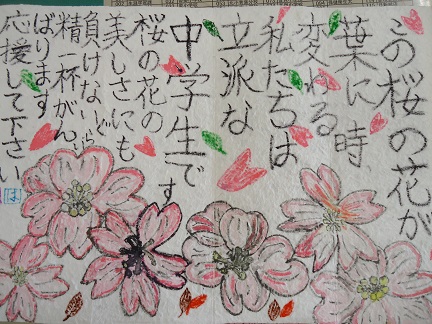 この桜の花が
葉に時
変わる
私たちは
立派な
中学生です
桜の花の
美しさにも
負けないぐらい
精一杯がん
ばります
応援して下さい
は